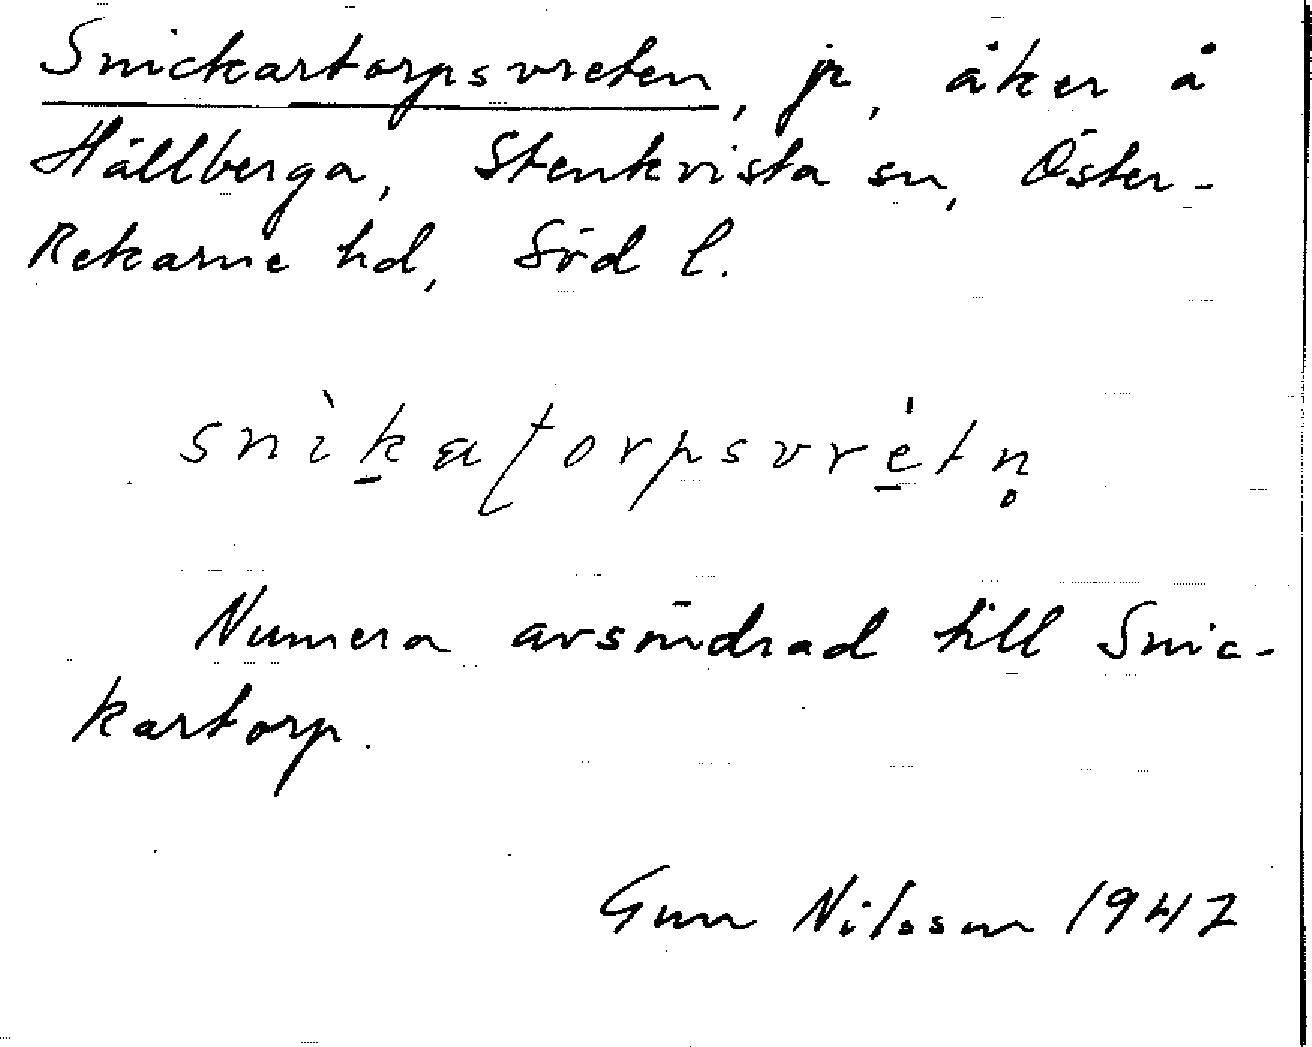 Snickartorpsvreten, jr, åker å
Hällberga, Stenkvista sn, Öster-
Rekarne hd, Söd l.
snìk̲aʈorpsvré̲tn̥
Numera avsöndrad till Snic-
kartorp.
Gun Nilsson 1947